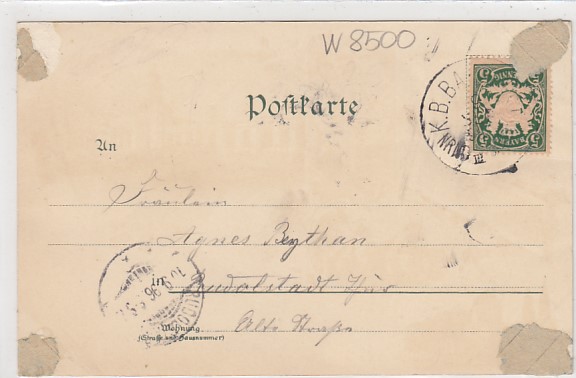 W 8500
K.B.BA
5 5
BAYERN
5 5
Postkarte
An
Fräulein
Agnes Beythan
in Rudolstadt Thür
Alte Straße
Wohnung
(Straße und Hausnummer)